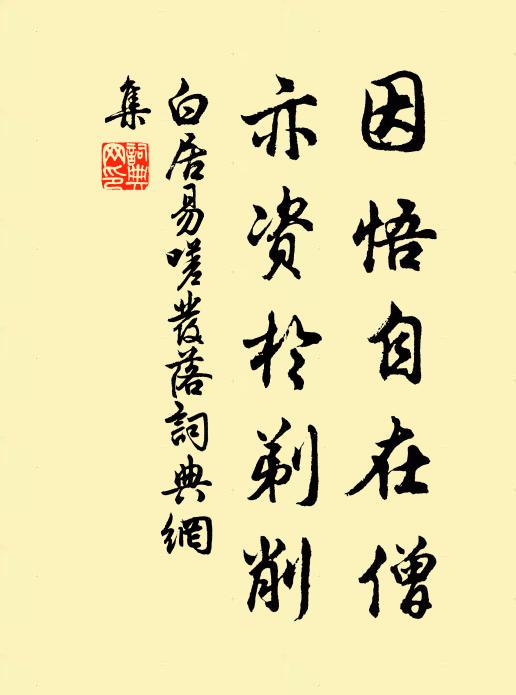 因悟自在僧
亦资於剃削
白居易嗟发落詞典網
集
詞典网印